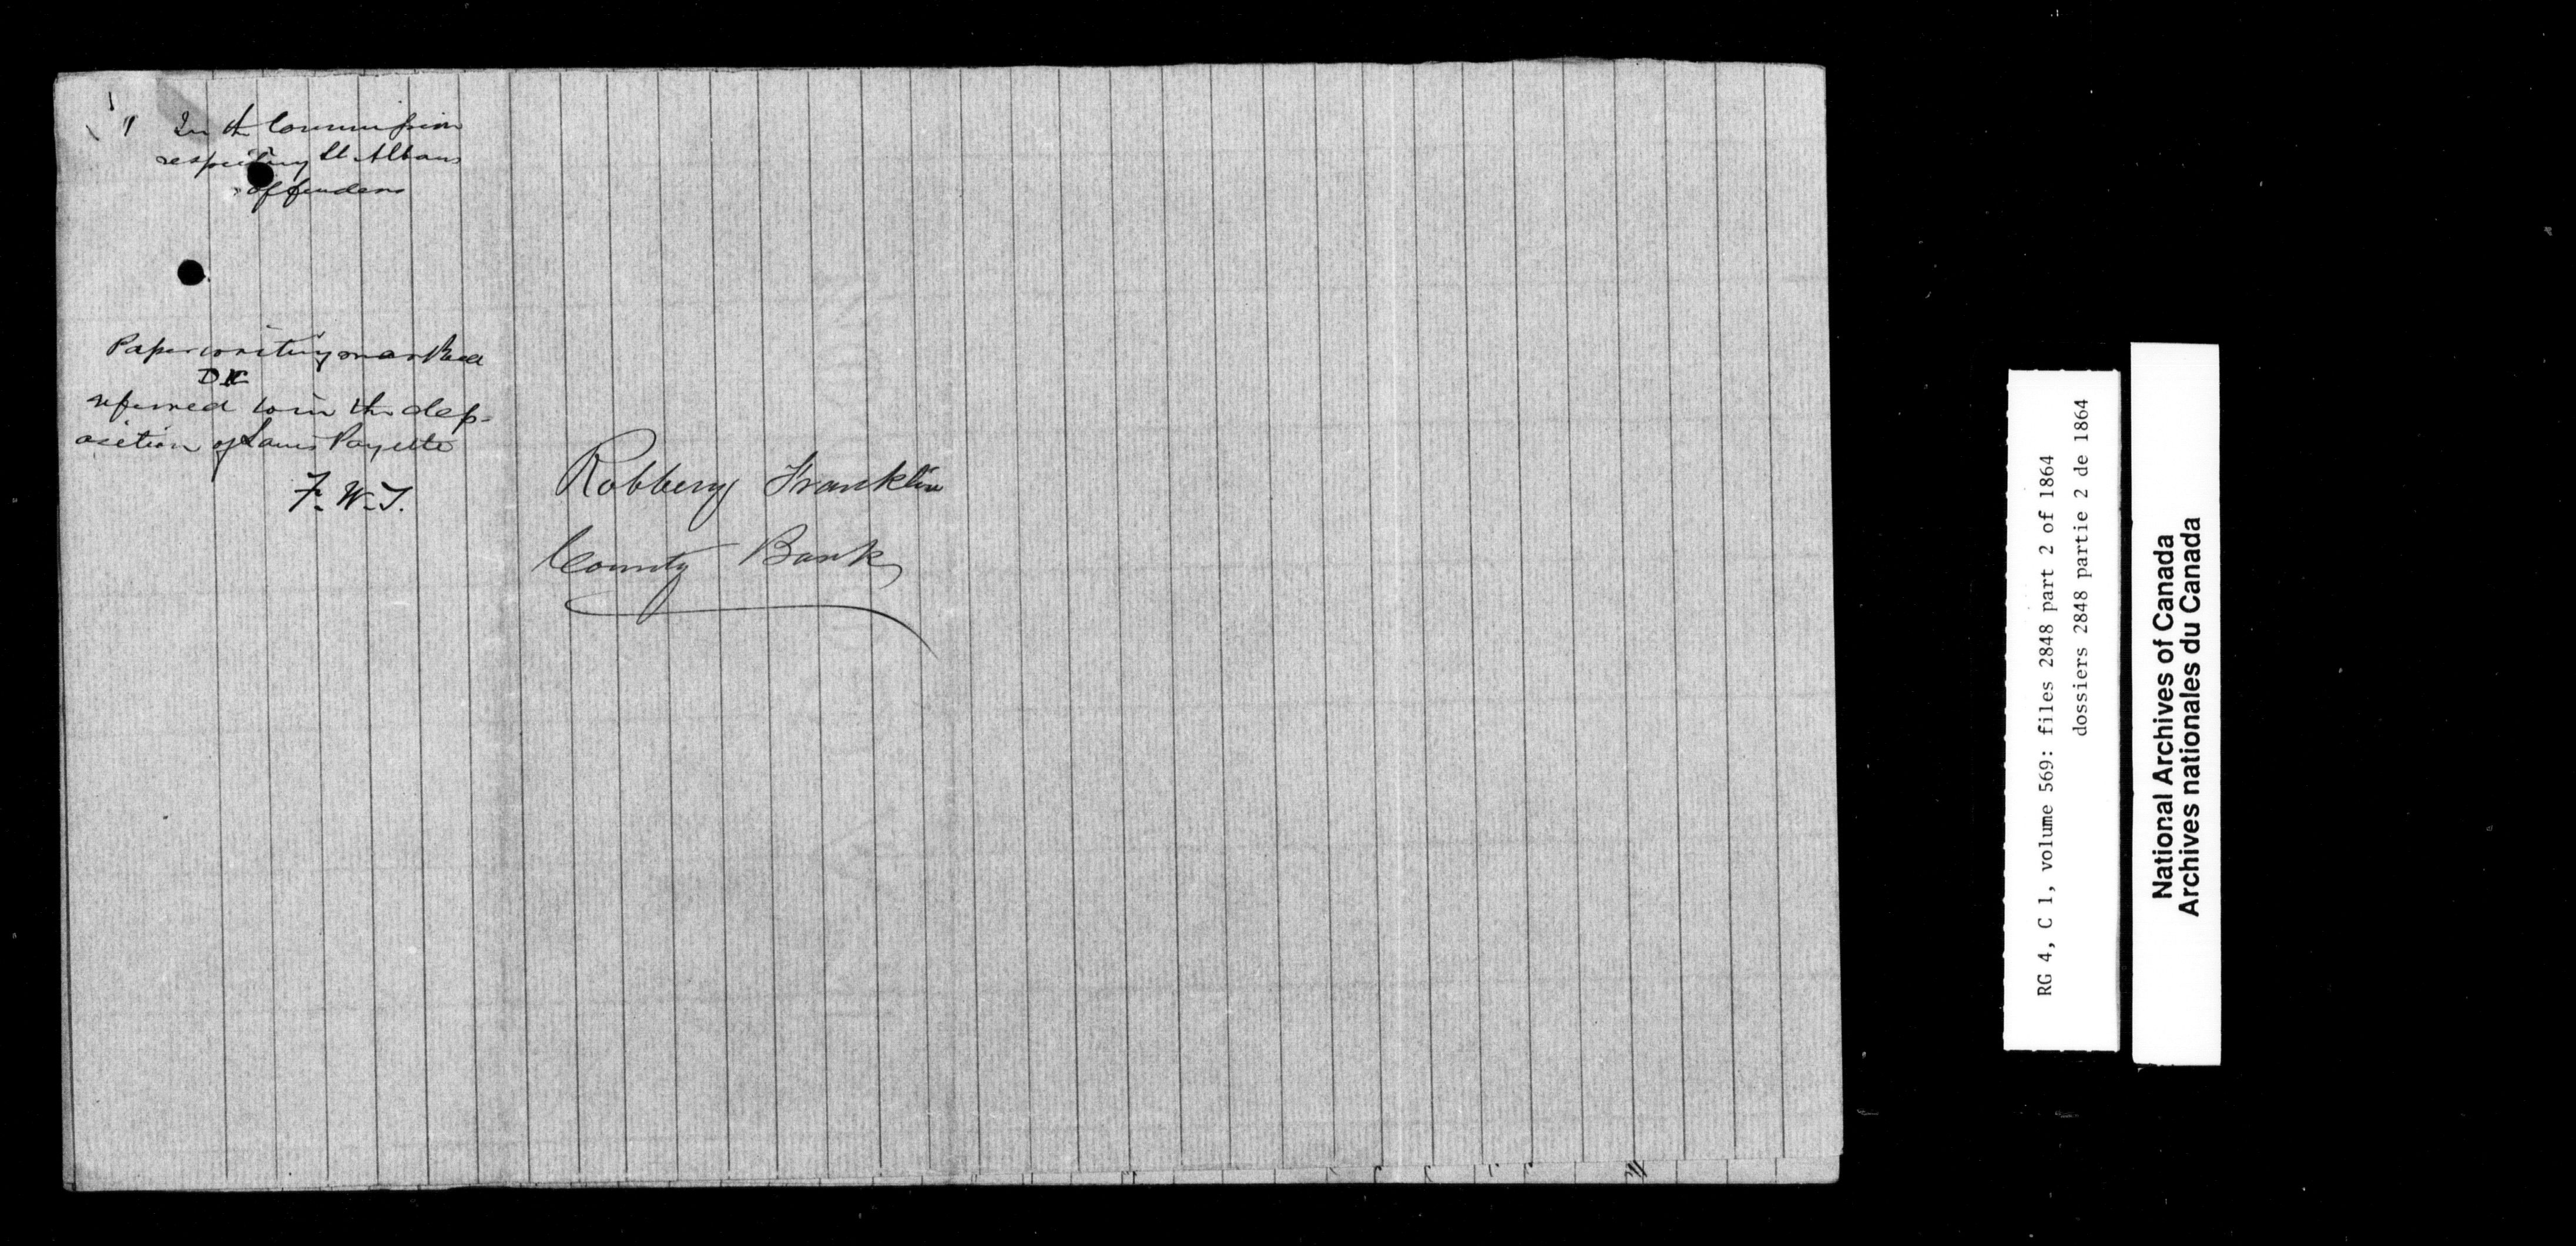 In the Commission
respecting St. Albans
offenders
Paper writing marked
D
referred to in the dep=
osition of Louis Payette
F. W. T.
Robbery Franklin
County Bank
RG 4, C 1, volume 569: files 2848 part 2 of 1864
dossiers 2848 partie 2 de 1864
National Archives of Canada
Archives nationales du Canada